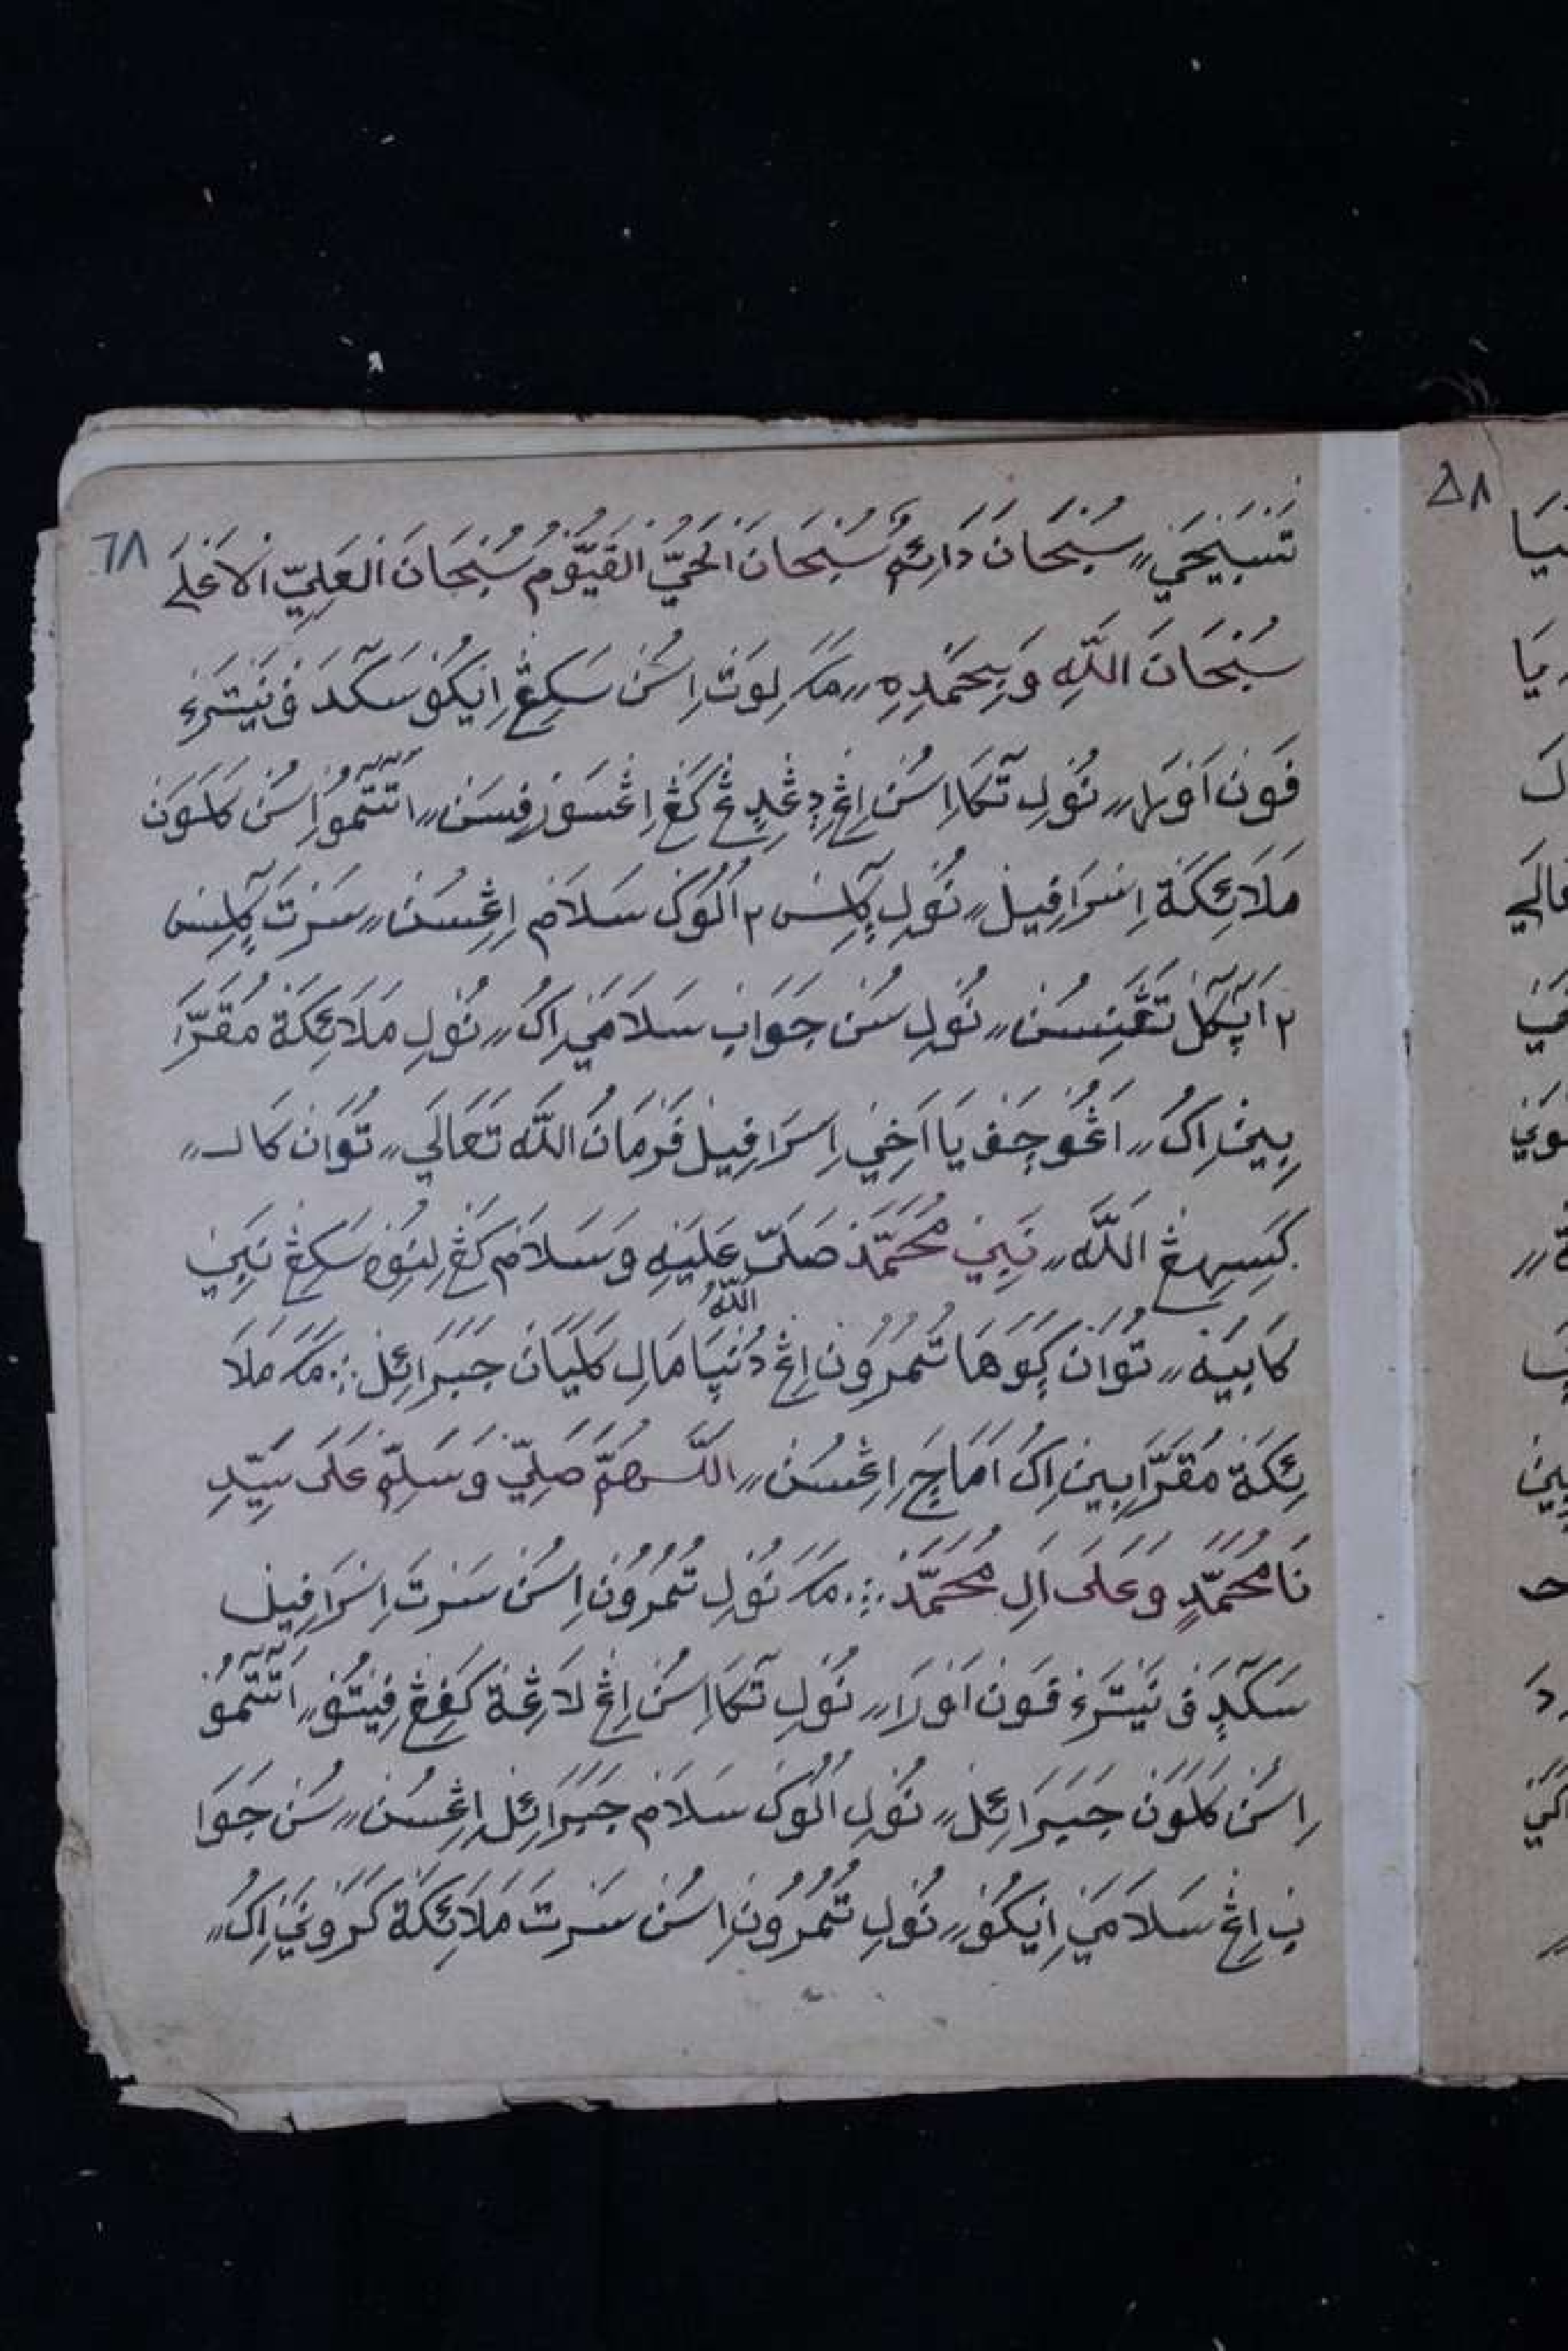 ٦٨
تَسْبِيْحَيْ〃 سُبْحَانَ دَائِمُ سُبْحَانَ الْحَيُّ الْقَيُّوْمُ سُبْحَانَ الْعَلِيّ الْاَعْلَى
سُبْحَانَ اللهِ وَبِحَمْدِهِ〃 مَكَ لِوَتْ اِسُنْ سَكِڠْ اِيْكُوْ سَكٓدَ فَ نَيْتْرَءِ
فَوْنْ اَوْرَا〃 نُوْلِ تٓكَا اِسُنْ اِڠْ دِڠْدِڠْ كَڠْ اِڠْسَوْرْ فِسَنْ〃 اَتٓتٓمُوْ اِسُنْ كَلَوَنْ
مَلَائِكَةْ اِسْرَافِيْلْ〃 نُوْلِ ڮٓلِسْ ٢ اُلُوْكْ سَلَامْ اِڠِسُنْ〃 سَرْتَ ڮٓلِسْ
٢ اَڽٓكٓلْ تَڠَنِسُنْ〃 نُوْلِ سُنْ جَوَابْ سَلَامَيْ اِكُ〃 نُوْلِ مَلَائِكَةْ مُقَرَّا
بِيْنْ اِكُ〃 اَڠُوْچَفْ يَا اَخِيْ اِسْرَافِيْلْ فَرْمَانُ اللهْ تَعَالَى〃 تُوَانْ كَالــ〃
كَسِيْهِڠْ اللهْ〃 نَبِيْ مُحَمَّدْ صَلَّى اللهُ عَلَيْهِ وَسَلَامْ كَڠْ لِنُوِهْ سَكِڠْ نَبِيْ
كَابَيْهْ〃 تُوَانْ ڮَوَهَا تُمُرُوْنْ اِڠْ دُنْيَا مَالِ كَلِيَانْ جَبَرَائِلْ ∴ مَكَ مَلَا
ئِكَةْ مُقَرَّابِيْنْ اِكُ اَمَاچَ اِڠِسُنْ〃 اَللّٰهُمَّ صَلِّيْ وَسَلِّمْ عَلَى سَيِّدِ
نَا مُحَمَّدٍ وَعَلَى اَلِ مُحَمَّدْ ∴ مَكَ نُوْلِ تُمُرُوْنْ اِسُنْ سَرْتَ اِسْرَافِيْلْ
سَكٓدٍ فَ نَيْتْرَءِ فَوْنْ اَوْرَا〃 نُوْلِ تٓكَا اِسُنْ اِڠْ لَاڠِةْ كَفِڠْ فِيْتُوْ〃 اَتٓتٓمُوْ
اِسُنْ كَلَوَنْ جَبَرَائِلْ〃 نُوْلِ اُلُوْكْ سَلَامْ جَبَرَائِلْ اِڠِسُنْ〃 سُنْ جَوَا
بْ اِڠْ سَلَامَيْ اِيْكُوْ〃 نُوْلِ تُمُرُوْنْ اِسُنْ سَرْتَ مَلَائِكَةْ كَرَوْنَيْ اِكُ〃